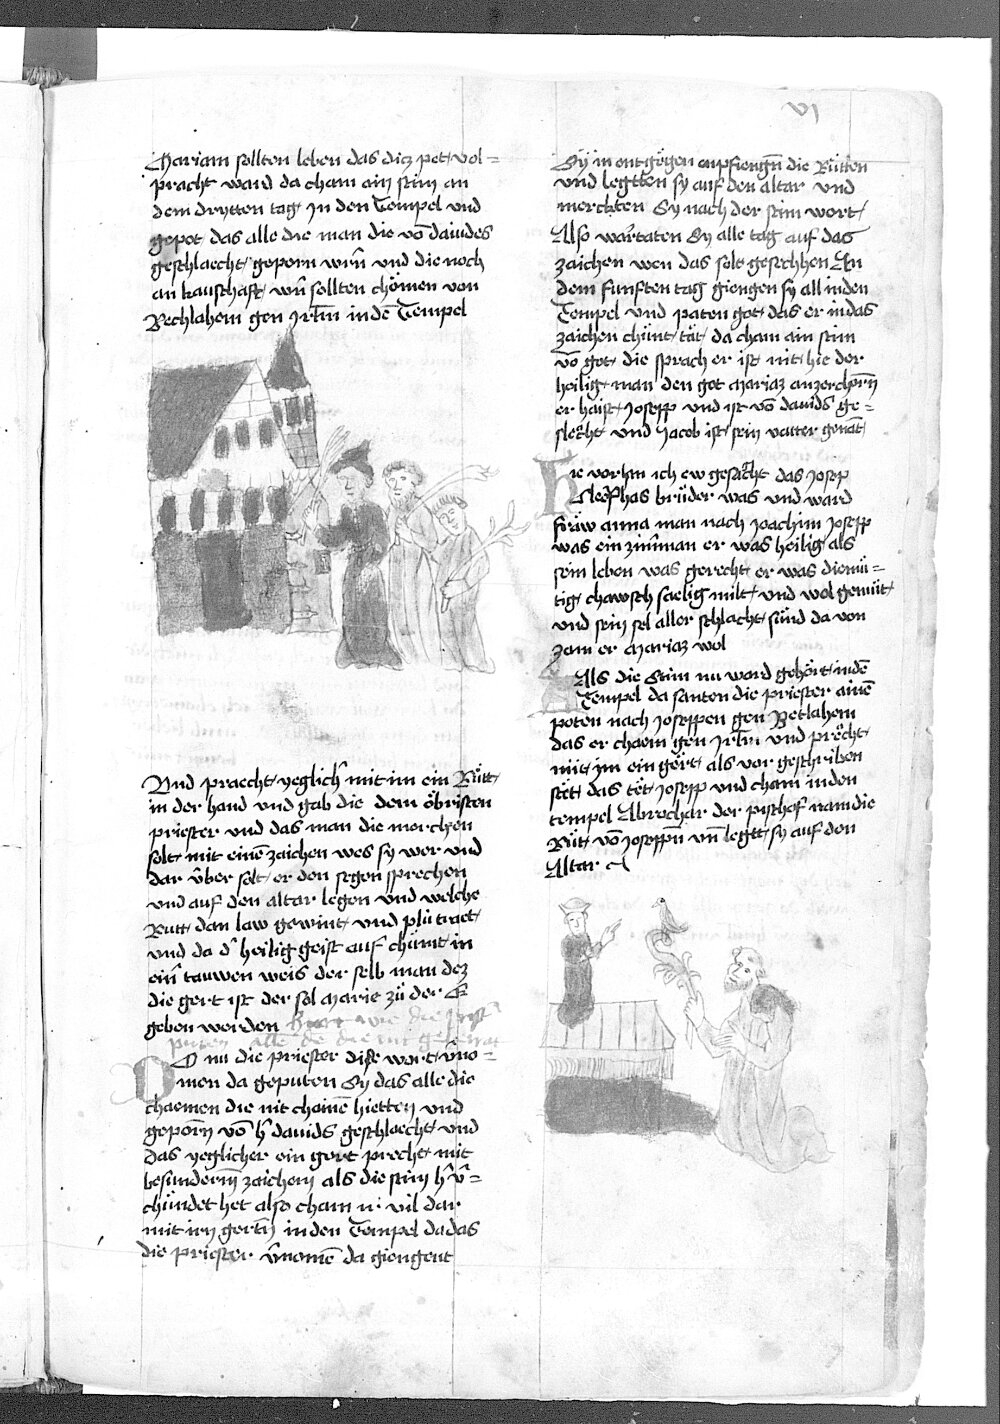 VI
Mariam sollten leben das diz pet vol=
pracht ward da cham ain stim an
dem drytten tag Jn den Tempel vnd
gepot das alle die man die võ dauides
geschlaecht geporn wrn̄ vnd die noch
an kauschaft wn̄ sollten chömen von
Bechlahem gen Jrl̄m in dē Tempel
Vnd praecht yeglichr̄ mit im ein Růtt
in der hand vnd gab die dem öbristen
priester vnd das man die morchen
solt mit einē zaichen wes sy wer vnd
dar v̂ber solt er den segen sprechen
vnd auf den altar legen vnd welche
Rutt dan law gewint vnd plů traet
vnd da d̄ heilig geist auf chümt in
ein̄ tauwen weis der selb man dez
die gert ist der sol Marie zů der E
geben werden
O nu die priester dise wort v̄no=
men da geputen Sy das alle die
chaemen die nit chainē hietten vnd
geporn̄ võ h̄ dauids geschlaecht vnd
das yeglicher ein gert precht mit
besunderm̄ zaichem als die stim h̄ v̄=
chündet het also cham ir vil dar
mit irn gertn̄ in den Tempel da das
die priester v̄nomē da giengent
Sÿ in entgögen enpfiengn̄ die Růtten
vnd legtten sy auf den altar vnd
merckten Sy nach der stim wort
Also wartaten Sy alle tag auf das
zaichen wen das solt geschehen An
dem funften tag giengen sy all in den
Tempel vnd paten got das er in das
zaichen chünt tät da cham ain stim
võ got die sprach er ist nit hie der
heilig man den got Mariaz anzerchorn̄
er haist Joseph vnd ist võ dauids ge=
slächt vnd Jacob ist sein vatter genāt
Hie vor han ich ew gesächt das Josep
Cleophas brüder was vnd ward
fräw anna man nach Joachim Josepp
was ein zim̄man er was heilig als
sein leben was gerecht er was diemü=
tig chawsch saelig milt vnd wol gemüt
vnd sein sel aller schlacht sünd da von
zam er Mariaz wol
Als die Stim nu ward gehört in dē
Tempel da santen die priester ainē
poten nach Joseppen gen Betlahem
das er chaem gen Jrl̄m vnd prëcht
mit im ein gert als vor geschriben
stet das tet Josepp vnd cham in den
tempel Abrochar der pischof nam die
Růt võ Joseppn̄ vn̄ legtt sy auf den
Altar